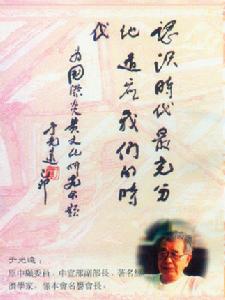 認識時代最充分
地適應我們的時
代
為国際炎黄文化研究会題
于光遠
于光遠：
原中顧委員、中宣部副部長、著名經
濟學家，係本會名譽會長。